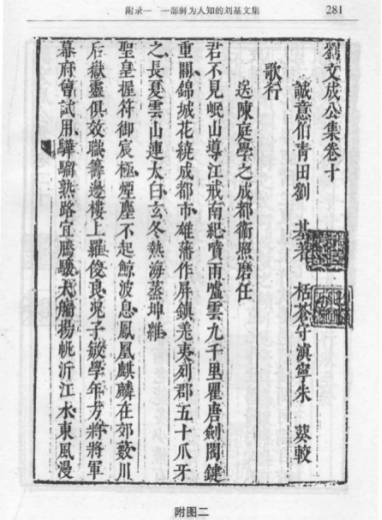 附录一 一部鲜为人知的刘基文集 281
劉文成公集卷十
誠意伯青田劉 基著 栝蒼守滇寧朱 葵較
歌行
送陳庭學之成都衛照磨任
君不見岷山導江戒南紀噴雨噓雲九千里瞿唐劍閣鍵
重關錦城花繞成都市雄藩作屏鎮羗夷列郡五十爪牙
之長夏雲山連太白玄冬熱海蒸坤維
聖皇握符御宸極煙塵不起鯨波息鳳凰麒麟在郊藪川
后嶽靈俱效職籌邊樓上羅俊良兎子銳學年方將將軍
幕府曾試用驊騮熟路宜騰驤大艑揚帆泝江水東風漫
附图二